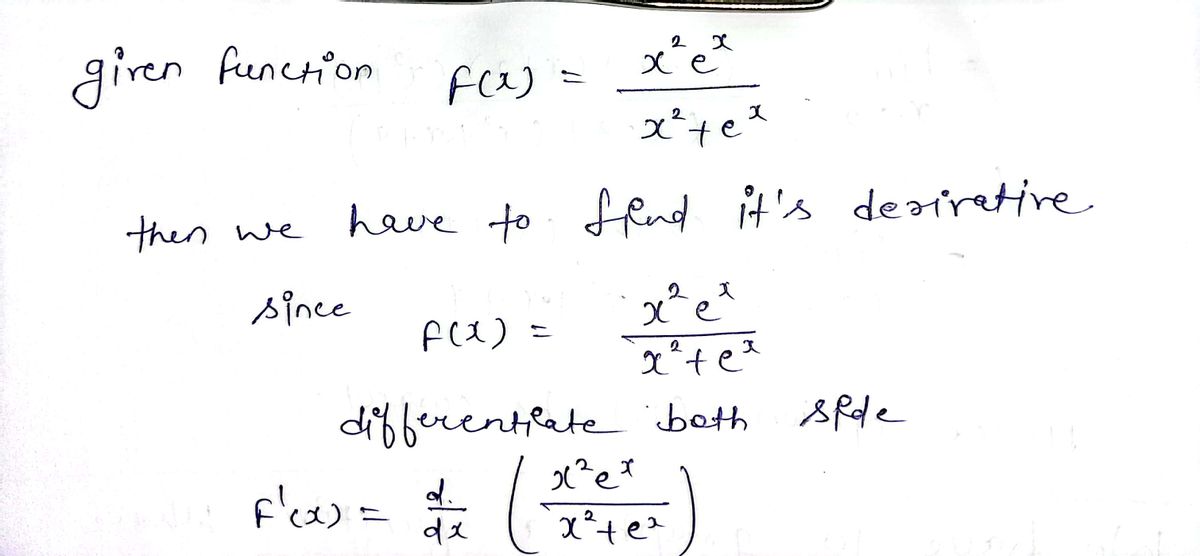 given function f(x) = x²eˣ / x²+eˣ
then we have to find it's derivative
since f(x) = x²eˣ / x²+eˣ
differentiate both side
f'(x) = d/dx ( x²eˣ / x²+eˣ )